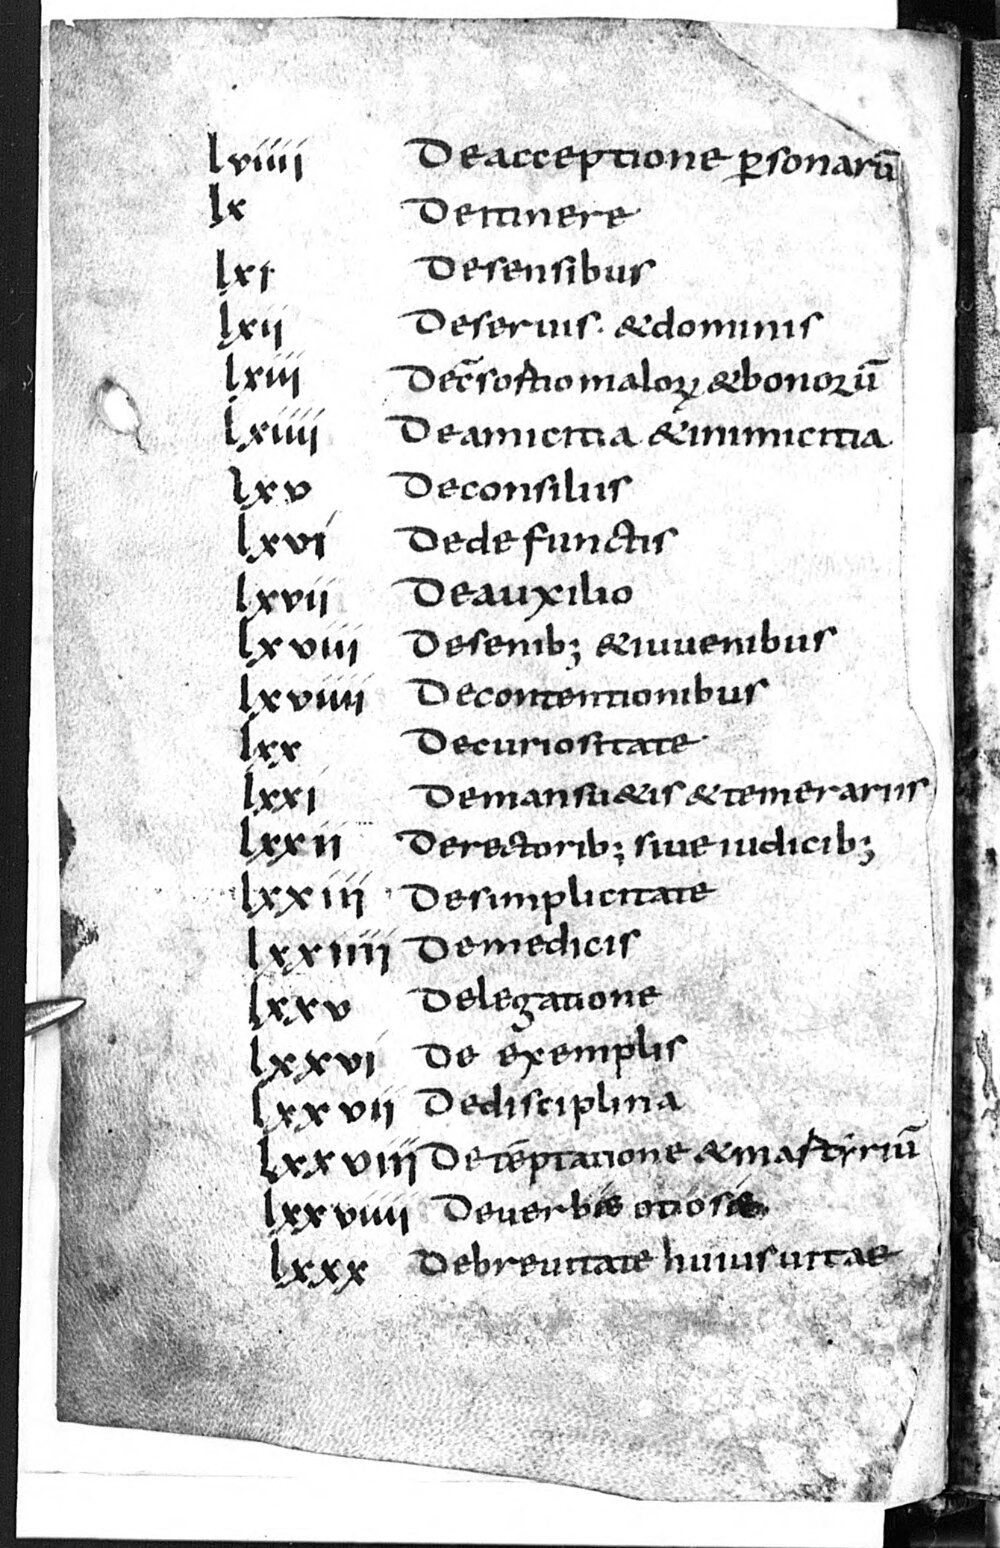 lviiii De acceptione ꝑsonarū
lx De itinere
lxi De sensibus
lxii De seruis · & dominis
lxiii De c̄sortio maloꝝ & bonorū
lxiiii De amicitia & inimicitia
lxv De consiliis
lxvi De defunctis
lxvii De auxilio
lxviii De senib; & iuuenibus
lxviiii De contentionibus
lxx De curiositate
lxxi De mansu&is & temerariis
lxxii De rectorib; siue iudicib;
lxxiii De simplicitate
lxxiiii De medicis
lxxv De legatione
lxxvi De exemplis
lxxvii De disciplina
lxxviii De tēptatione & martyriū
lxxviiii De uerbis otiosis
lxxx De breuitate huius uitae